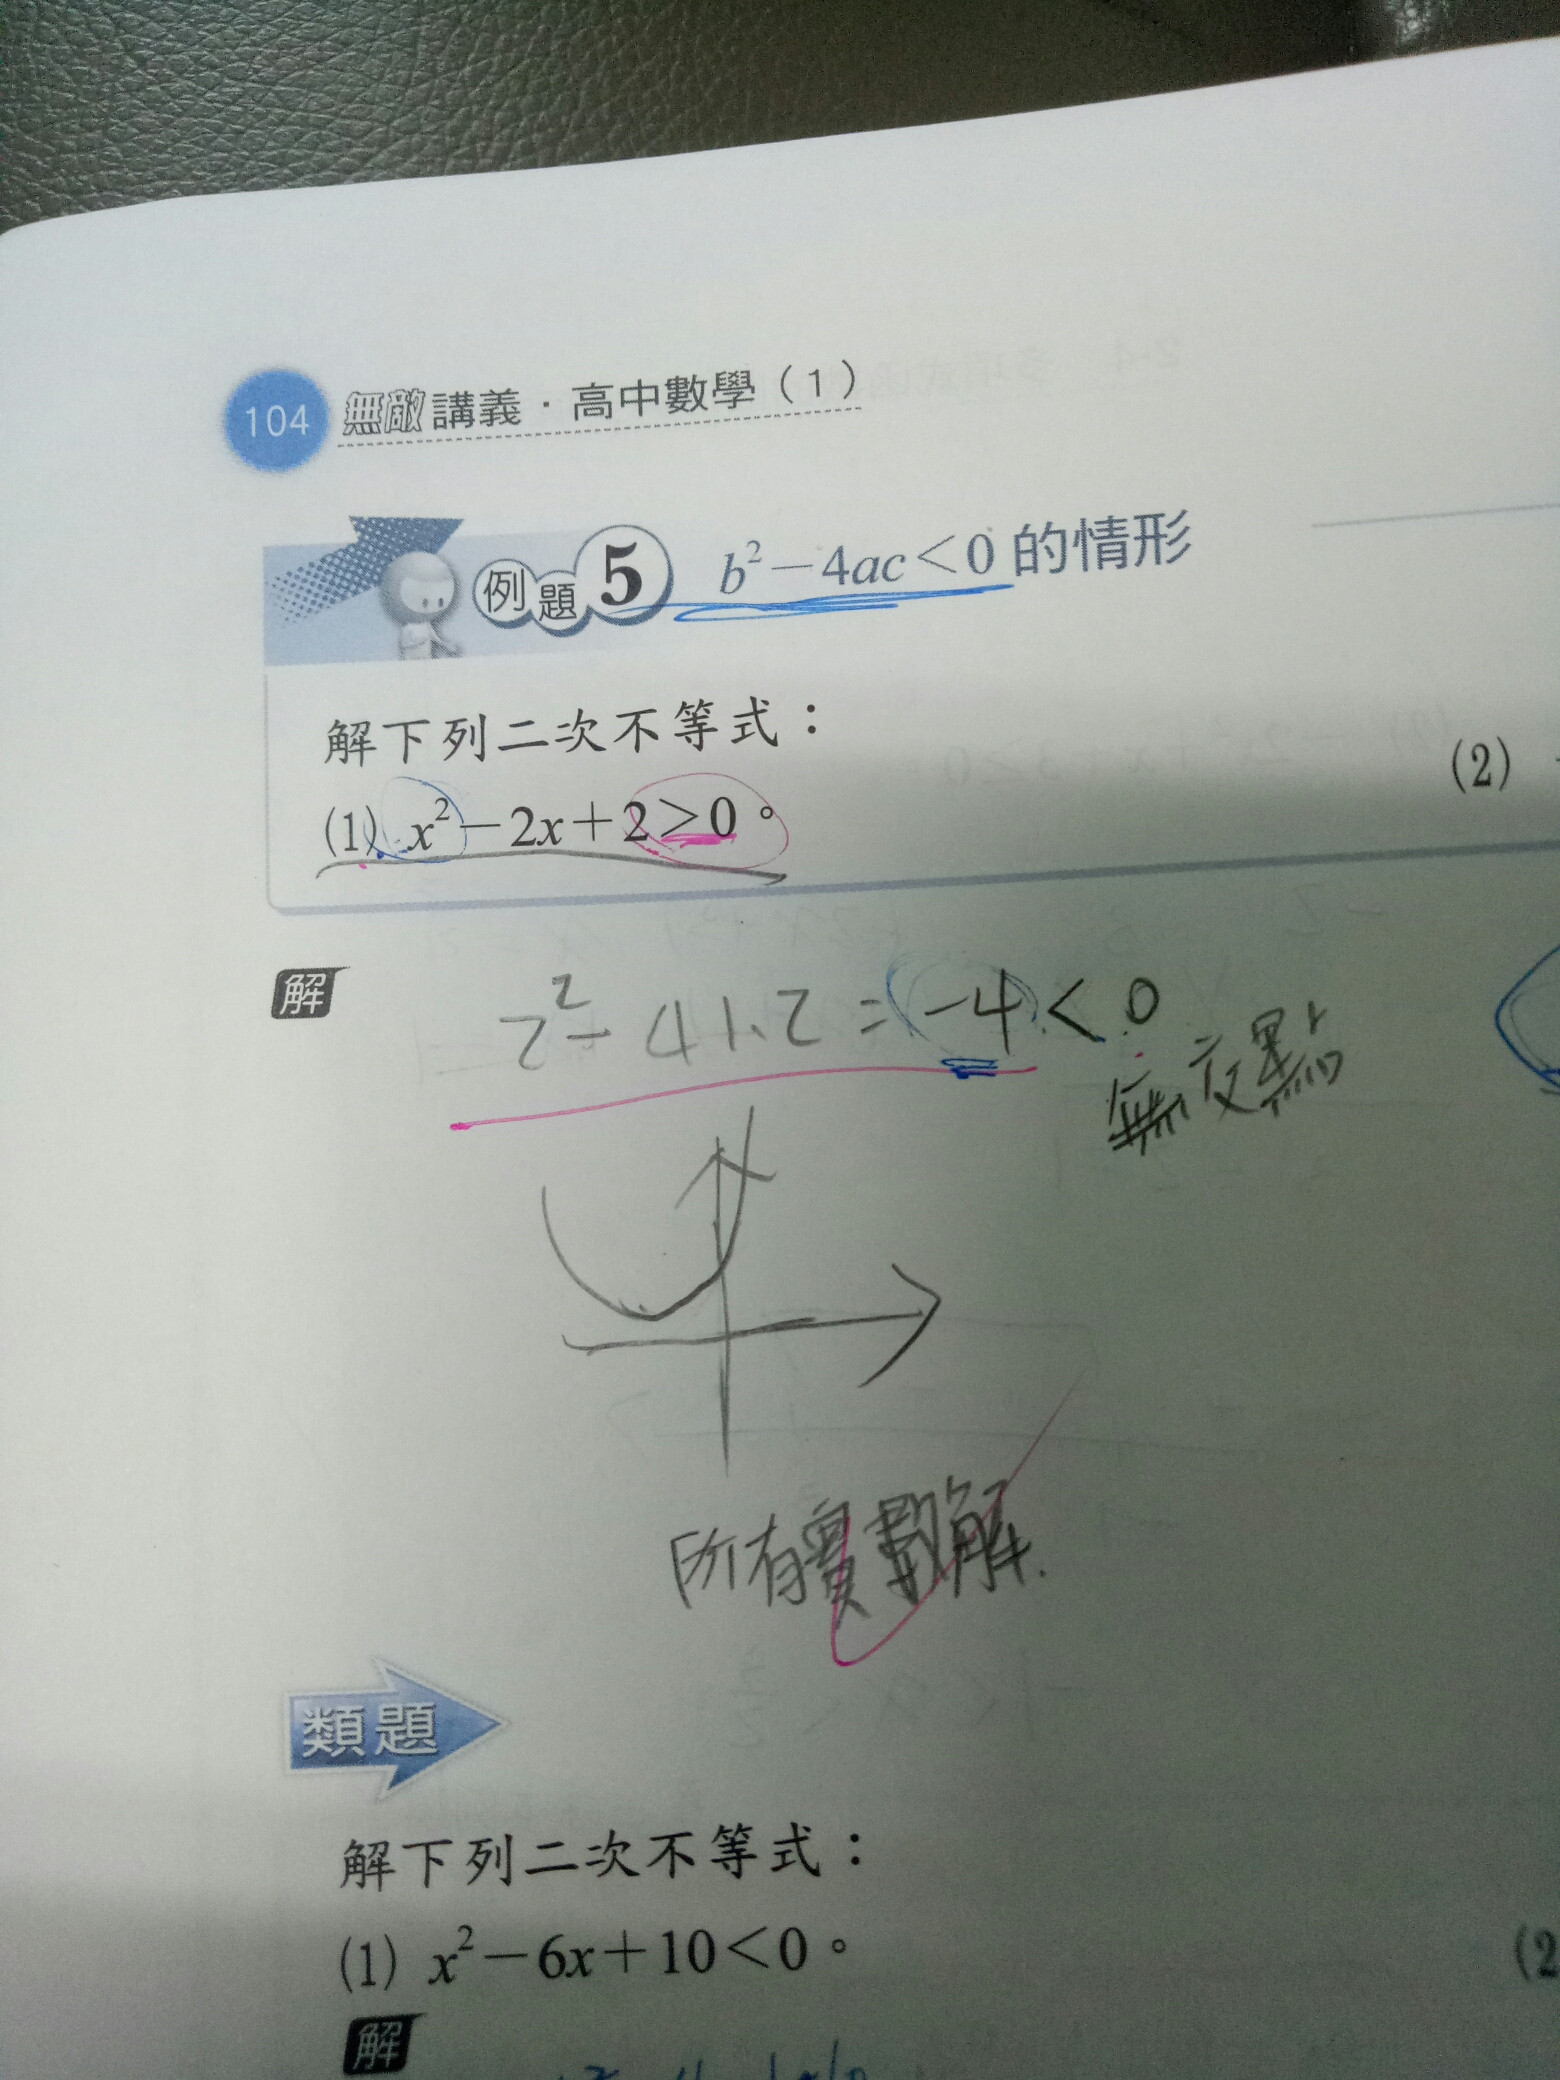 104 無敵講義·高中數學(1)
例題5 b²-4ac<0的情形
解下列二次不等式：
(1) x²-2x+2>0。
(2)
解
2²-4·1·2=-4<0
無交點
所有實數解.
類題
解下列二次不等式：
(1) x²-6x+10<0。
(2
解